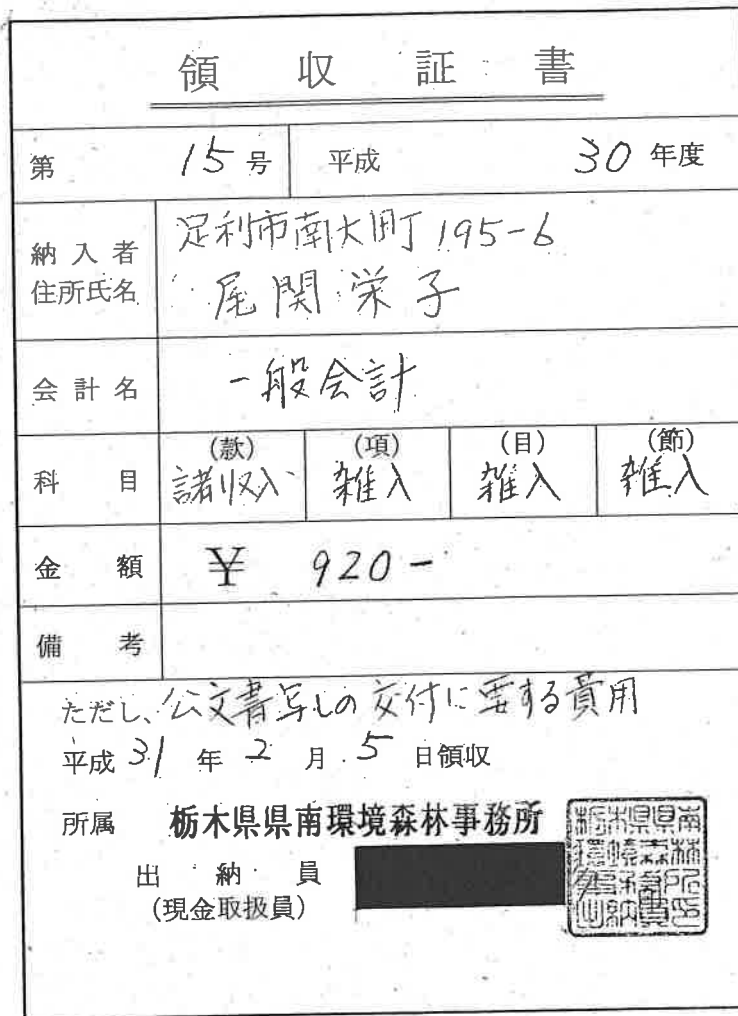 領収証書
第 15 号 平成 30 年度
納入者住所氏名 足利市南大町195-6
尾関栄子
会計名 一般会計
科目 (款) 諸収入 (項) 雑入 (目) 雑入 (節) 雑入
金額 ¥ 920-
備考
ただし、公文書写しの交付に要する費用
平成 31 年 2 月 5 日領収
所属 栃木県県南環境森林事務所
出納員
(現金取扱員)